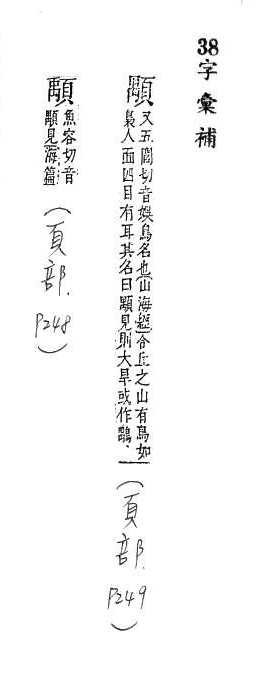 38字彙補
顒 又五圄切音娛鳥名也山海經令丘之山有鳥如
梟人面四目有耳其名曰顒見則大旱或作鷠
(頁部. P249)
魚容切音
顒見海篇
(頁部. P248)